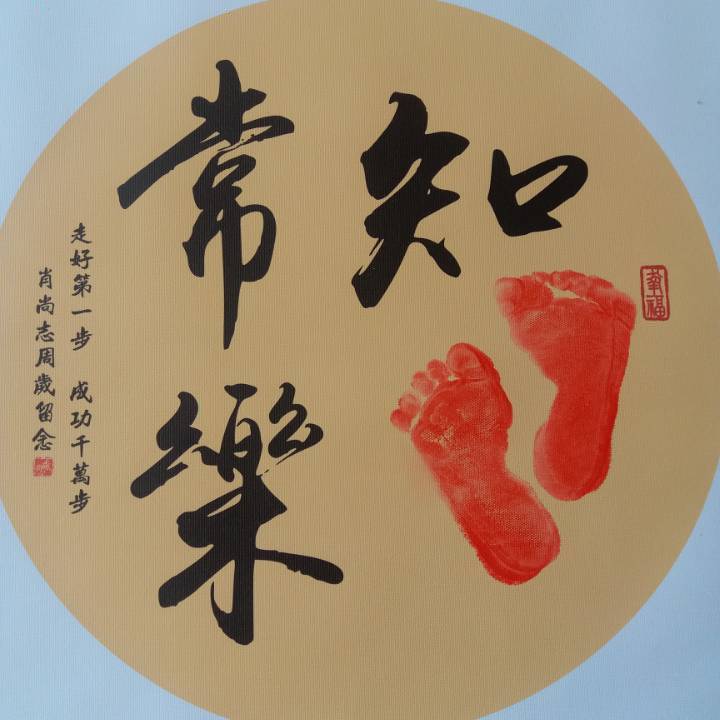 知
常樂
幸福
走好第一步 成功千萬步
肖尚志周歲留念